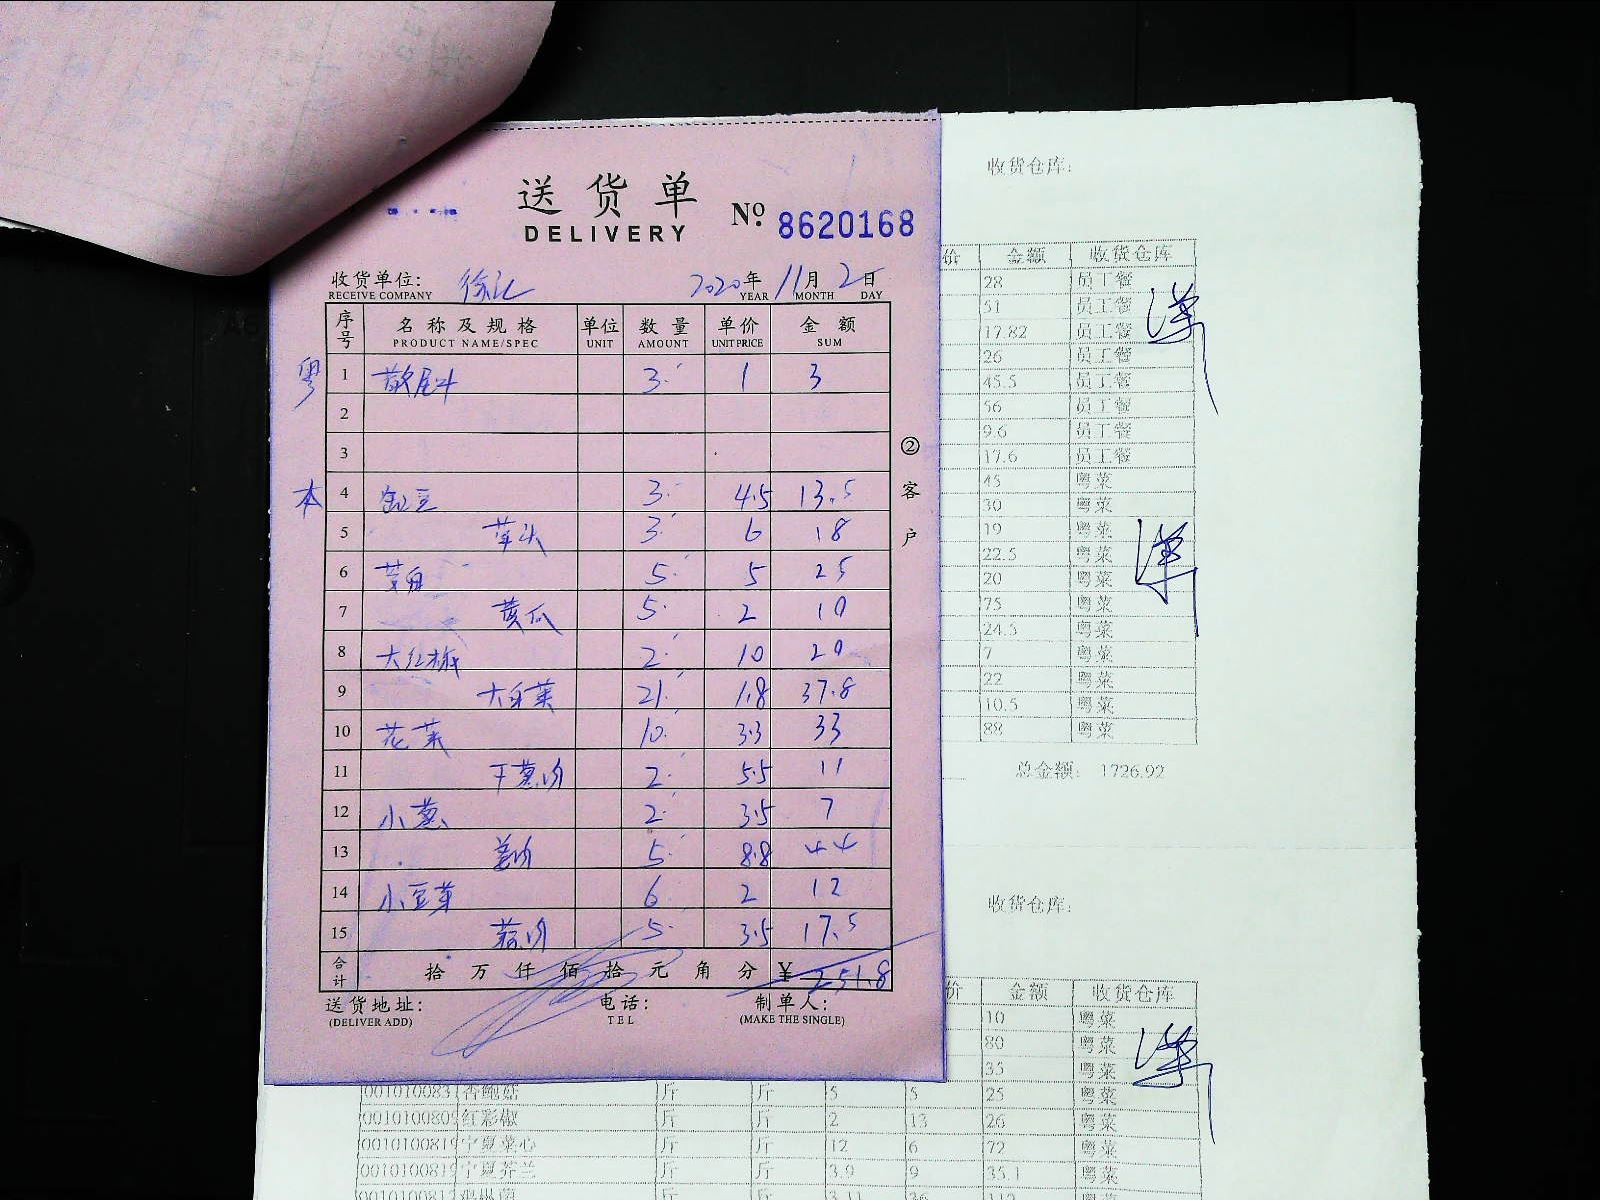 送货单
DELIVERY
№ 8620168
收货单位: 徐记 2020年 11月 2日
RECEIVE COMPANY YEAR MONTH DAY
序号 名称及规格 单位 数量 单价 金额
PRODUCT NAME/SPEC UNIT AMOUNT UNIT PRICE SUM
粤
1 3 1 3
2
3
本
4 3 4.5 13.5
5 3 6 18
6 5 5 25
7 黄瓜 5 2 10
8 大红椒 2 10 20
9 大白菜 21 1.8 37.8
10 花菜 10 3.3 33
11 干葱肉 2 5.5 11
12 小葱 2 3.5 7
13 姜肉 5 8.8 44
14 小豆芽 6 2 12
15 蒜肉 5 3.5 17.5
合计 拾 万 仟 佰 拾 元 角 分 ¥ 251.8
送货地址: 电话: 制单人:
(DELIVER ADD) TEL (MAKE THE SINGLE)
② 客户
收货仓库:
价 金额 收货仓库
28 员工餐
51 员工餐
17.82 员工餐
26 员工餐
45.5 员工餐
56 员工餐
9.6 员工餐
17.6 员工餐
45 粤菜
30 粤菜
19 粤菜
22.5 粤菜
20 粤菜
75 粤菜
24.5 粤菜
7 粤菜
22 粤菜
10.5 粤菜
88 粤菜
总金额: 1726.92
收货仓库:
价 金额 收货仓库
10 粤菜
80 粤菜
35 粤菜
001010083 杏鲍菇 斤 斤 5 5 25 粤菜
00101008 红彩椒 斤 斤 2 13 26 粤菜
001010081 宁夏菜心 斤 斤 12 6 72 粤菜
001010081 宁夏芥兰 斤 斤 3.9 9 35.1 粤菜